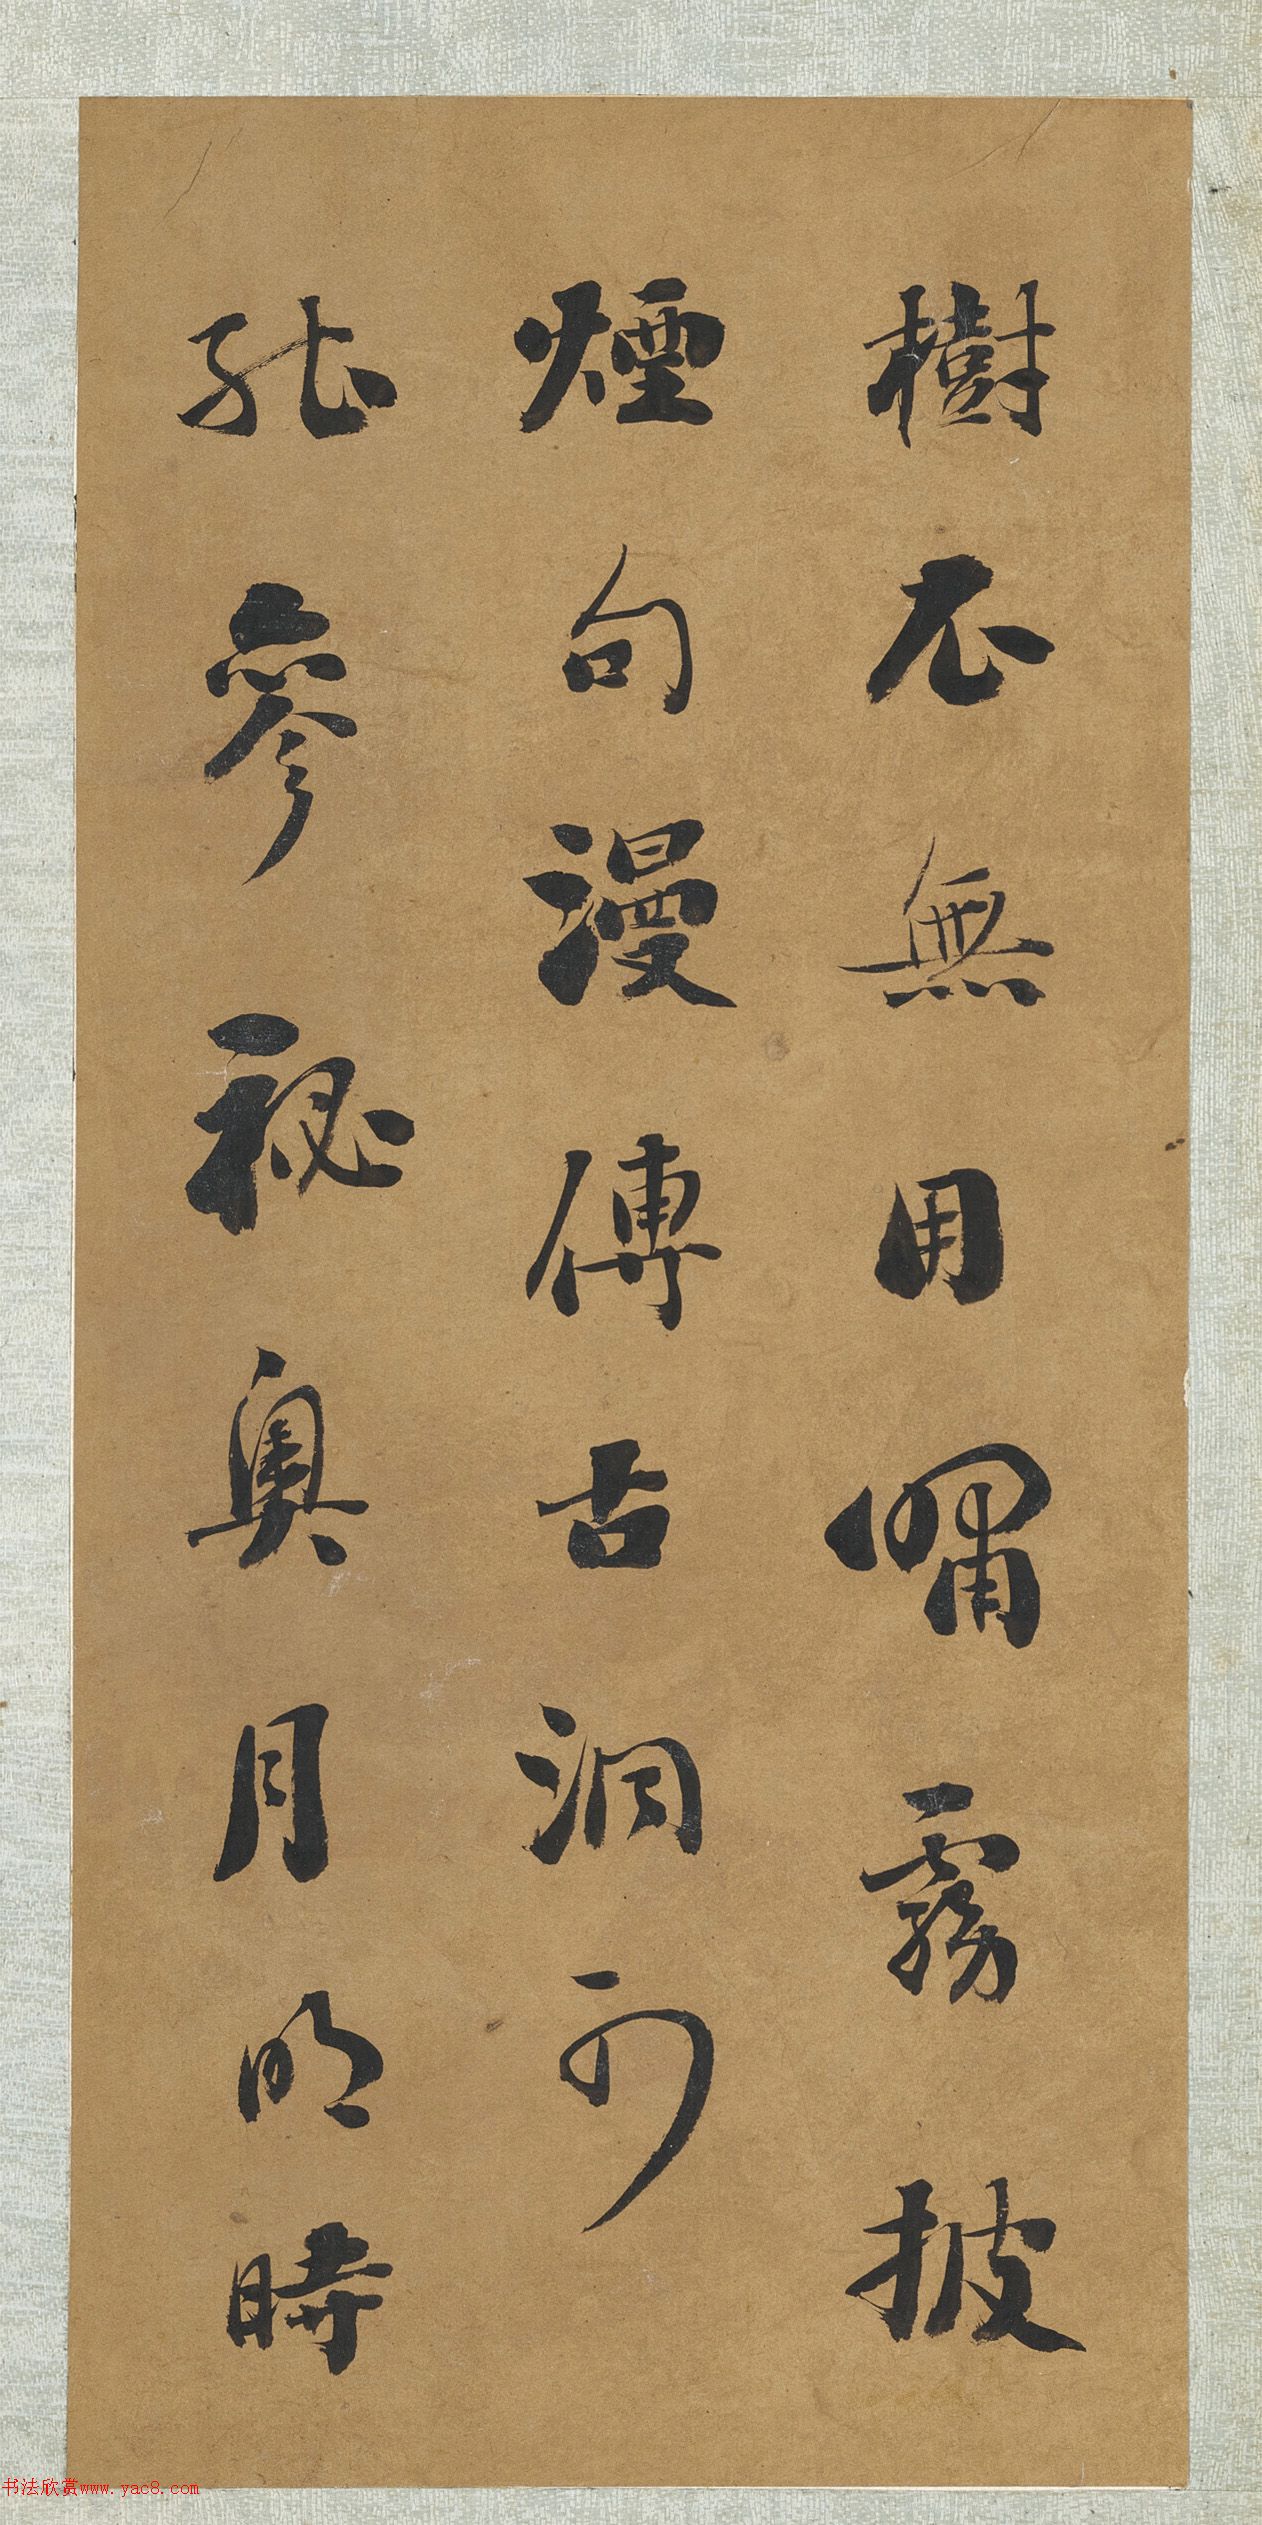 樹不無用嘯霧披
煙句漫傳古洞可
能參秘奧月明時
书法欣赏www.yac8.com